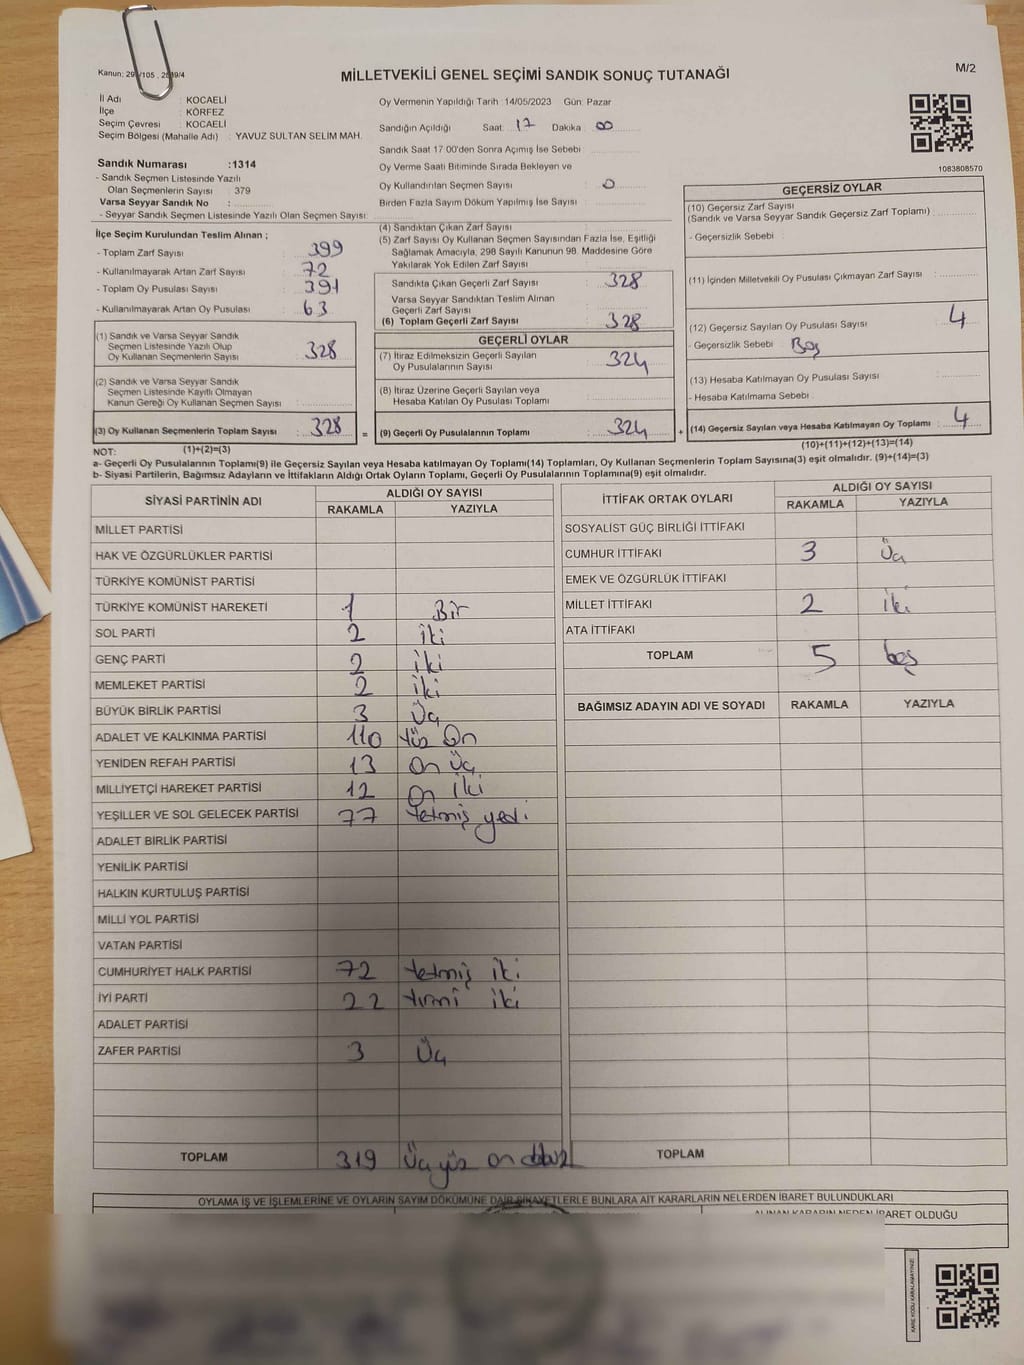 Kanun; 298/105 , 2839/4
MİLLETVEKİLİ GENEL SEÇİMİ SANDIK SONUÇ TUTANAĞI
M/2
İl Adı : KOCAELİ
İlçe : KÖRFEZ
Seçim Çevresi : KOCAELİ
Seçim Bölgesi (Mahalle Adı) : YAVUZ SULTAN SELİM MAH.
Sandık Numarası :1314
- Sandık Seçmen Listesinde Yazılı
Olan Seçmenlerin Sayısı : 379
Varsa Seyyar Sandık No :
- Seyyar Sandık Seçmen Listesinde Yazılı Olan Seçmen Sayısı:
Oy Vermenin Yapıldığı Tarih :14/05/2023 Gün: Pazar
Sandığın Açıldığı Saat: 17 Dakika: 00
Sandık Saat 17:00'den Sonra Açılmış İse Sebebi :
Oy Verme Saati Bitiminde Sırada Bekleyen ve
Oy Kullandırılan Seçmen Sayısı : 0
Birden Fazla Sayım Döküm Yapılmış İse Sayısı :
1083808570
İlçe Seçim Kurulundan Teslim Alınan ;
- Toplam Zarf Sayısı : 399
- Kullanılmayarak Artan Zarf Sayısı : 72
- Toplam Oy Pusulası Sayısı : 391
- Kullanılmayarak Artan Oy Pusulası : 63
(1) Sandık ve Varsa Seyyar Sandık
Seçmen Listesinde Yazılı Olup
Oy Kullanan Seçmenlerin Sayısı : 328
(2) Sandık ve Varsa Seyyar Sandık
Seçmen Listesinde Kayıtlı Olmayan
Kanun Gereği Oy Kullanan Seçmen Sayısı :
(3) Oy Kullanan Seçmenlerin Toplam Sayısı : 328 =
(4) Sandıktan Çıkan Zarf Sayısı :
(5) Zarf Sayısı Oy Kullanan Seçmen Sayısından Fazla İse, Eşitliği
Sağlamak Amacıyla, 298 Sayılı Kanunun 98. Maddesine Göre
Yakılarak Yok Edilen Zarf Sayısı :
Sandıkta Çıkan Geçerli Zarf Sayısı : 328
Varsa Seyyar Sandıktan Teslim Alınan
Geçerli Zarf Sayısı :
(6) Toplam Geçerli Zarf Sayısı : 328
GEÇERLİ OYLAR
(7) İtiraz Edilmeksizin Geçerli Sayılan
Oy Pusulalarının Sayısı : 324
(8) İtiraz Üzerine Geçerli Sayılan veya
Hesaba Katılan Oy Pusulası Toplamı :
(9) Geçerli Oy Pusulalarının Toplamı : 324 +
GEÇERSİZ OYLAR
(10) Geçersiz Zarf Sayısı
(Sandık ve Varsa Seyyar Sandık Geçersiz Zarf Toplamı) :
- Geçersizlik Sebebi :
(11) İçinden Milletvekili Oy Pusulası Çıkmayan Zarf Sayısı :
(12) Geçersiz Sayılan Oy Pusulası Sayısı : 4
- Geçersizlik Sebebi : Boş
(13) Hesaba Katılmayan Oy Pusulası Sayısı :
- Hesaba Katılmama Sebebi :
(14) Geçersiz Sayılan veya Hesaba Katılmayan Oy Toplamı : 4
NOT: (1)+(2)=(3) (10)+(11)+(12)+(13)=(14)
a- Geçerli Oy Pusulalarının Toplamı(9) ile Geçersiz Sayılan veya Hesaba katılmayan Oy Toplamı(14) Toplamları, Oy Kullanan Seçmenlerin Toplam Sayısına(3) eşit olmalıdır. (9)+(14)=(3)
b- Siyasi Partilerin, Bağımsız Adayların ve İttifakların Aldığı Ortak Oyların Toplamı, Geçerli Oy Pusulalarının Toplamına(9) eşit olmalıdır.
SİYASİ PARTİNİN ADI ALDIĞI OY SAYISI
RAKAMLA YAZIYLA
MİLLET PARTİSİ
HAK VE ÖZGÜRLÜKLER PARTİSİ
TÜRKİYE KOMÜNİST PARTİSİ
TÜRKİYE KOMÜNİST HAREKETİ 1 Bir
SOL PARTİ 2 iki
GENÇ PARTİ 2 iki
MEMLEKET PARTİSİ 2 iki
BÜYÜK BİRLİK PARTİSİ 3 Üç
ADALET VE KALKINMA PARTİSİ 110 Yüz On
YENİDEN REFAH PARTİSİ 13 On Üç
MİLLİYETÇİ HAREKET PARTİSİ 12 On İki
YEŞİLLER VE SOL GELECEK PARTİSİ 77 Yetmiş yedi
ADALET BİRLİK PARTİSİ
YENİLİK PARTİSİ
HALKIN KURTULUŞ PARTİSİ
MİLLİ YOL PARTİSİ
VATAN PARTİSİ
CUMHURİYET HALK PARTİSİ 72 Yetmiş iki
İYİ PARTİ 22 Yirmi iki
ADALET PARTİSİ
ZAFER PARTİSİ 3 Üç
TOPLAM 319 Üç yüz on dokuz
İTTİFAK ORTAK OYLARI ALDIĞI OY SAYISI
RAKAMLA YAZIYLA
SOSYALİST GÜÇ BİRLİĞİ İTTİFAKI
CUMHUR İTTİFAKI 3 Üç
EMEK VE ÖZGÜRLÜK İTTİFAKI
MİLLET İTTİFAKI 2 iki
ATA İTTİFAKI
TOPLAM 5 beş
BAĞIMSIZ ADAYIN ADI VE SOYADI RAKAMLA YAZIYLA
TOPLAM
OYLAMA İŞ VE İŞLEMLERİNE VE OYLARIN SAYIM DÖKÜMÜNE DAİR ŞİKAYETLERLE BUNLARA AİT KARARLARIN NELERDEN İBARET BULUNDUKLARI
ALINAN KARARIN NEDEN İBARET OLDUĞU
KARE KODU KARALAMAYINIZ!